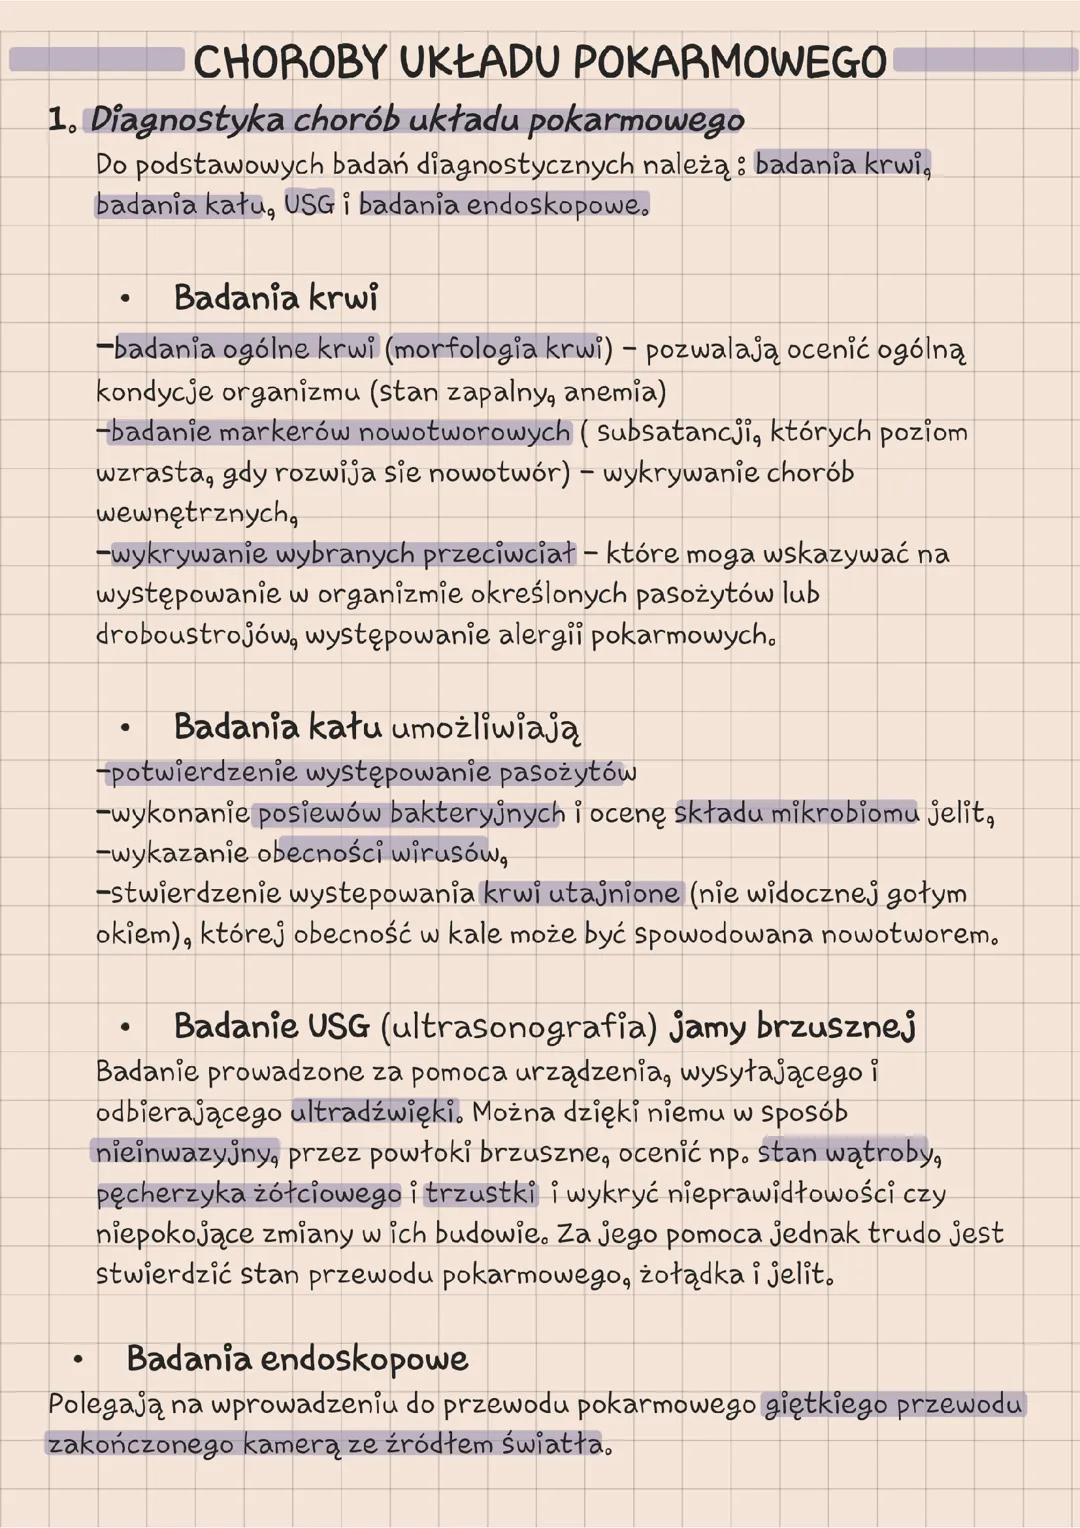 CHOROBY UKŁADU POKARMOWEGO
1. Diagnostyka chorób układu pokarmowego
Do podstawowych badań diagnostycznych należą : badania krwi,
badania kału, USG i badania endoskopowe.
• Badania krwi
-badania ogólne krwi (morfologia krwi) - pozwalają ocenić ogólną
kondycje organizmu (stan zapalny, anemia)
-badanie markerów nowotworowych ( subsatancji, których poziom
wzrasta, gdy rozwija sie nowotwór) - wykrywanie chorób
wewnętrznych,
-wykrywanie wybranych przeciwciał - które moga wskazywać na
występowanie w organizmie określonych pasożytów lub
droboustrojów, występowanie alergii pokarmowych.
• Badania kału umożliwiają
-potwierdzenie występowanie pasożytów
-wykonanie posiewów bakteryjnych i ocenę składu mikrobiomu jelit,
-wykazanie obecności wirusów,
-stwierdzenie wystepowania krwi utajnione (nie widocznej gołym
okiem), której obecność w kale może być spowodowana nowotworem.
• Badanie USG (ultrasonografia) jamy brzusznej
Badanie prowadzone za pomoca urządzenia, wysyłającego i
odbierającego ultradźwięki. Można dzięki niemu w sposób
nieinwazyjny, przez powłoki brzuszne, ocenić np. stan wątroby,
pęcherzyka żółciowego i trzustki i wykryć nieprawidłowości czy
niepokojące zmiany w ich budowie. Za jego pomoca jednak trudo jest
stwierdzić stan przewodu pokarmowego, żołądka i jelit.
• Badania endoskopowe
Polegają na wprowadzeniu do przewodu pokarmowego giętkiego przewodu
zakończonego kamerą ze źródłem światła.